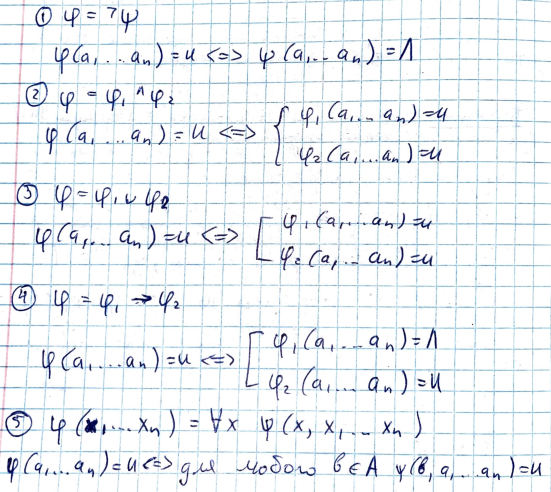 ① φ = ¬ψ
φ(a₁...aₙ) = и <=> ψ(a₁...aₙ) = Λ
② φ = φ₁ ∧ φ₂
φ(a₁...aₙ) = и <=> { φ₁(a₁...aₙ) = и
φ₂(a₁...aₙ) = и
③ φ = φ₁ ∪ φ₂
φ(a₁...aₙ) = и <=> [ φ₁(a₁...aₙ) = и
φ₂(a₁...aₙ) = и
④ φ = φ₁ → φ₂
φ(a₁...aₙ) = и <=> [ φ₁(a₁...aₙ) = Λ
φ₂(a₁...aₙ) = и
⑤ φ(x₁...xₙ) = ∀x ψ(x, x₁...xₙ)
φ(a₁...aₙ) = и <=> для любого b ∈ A ψ(b, a₁...aₙ) = и